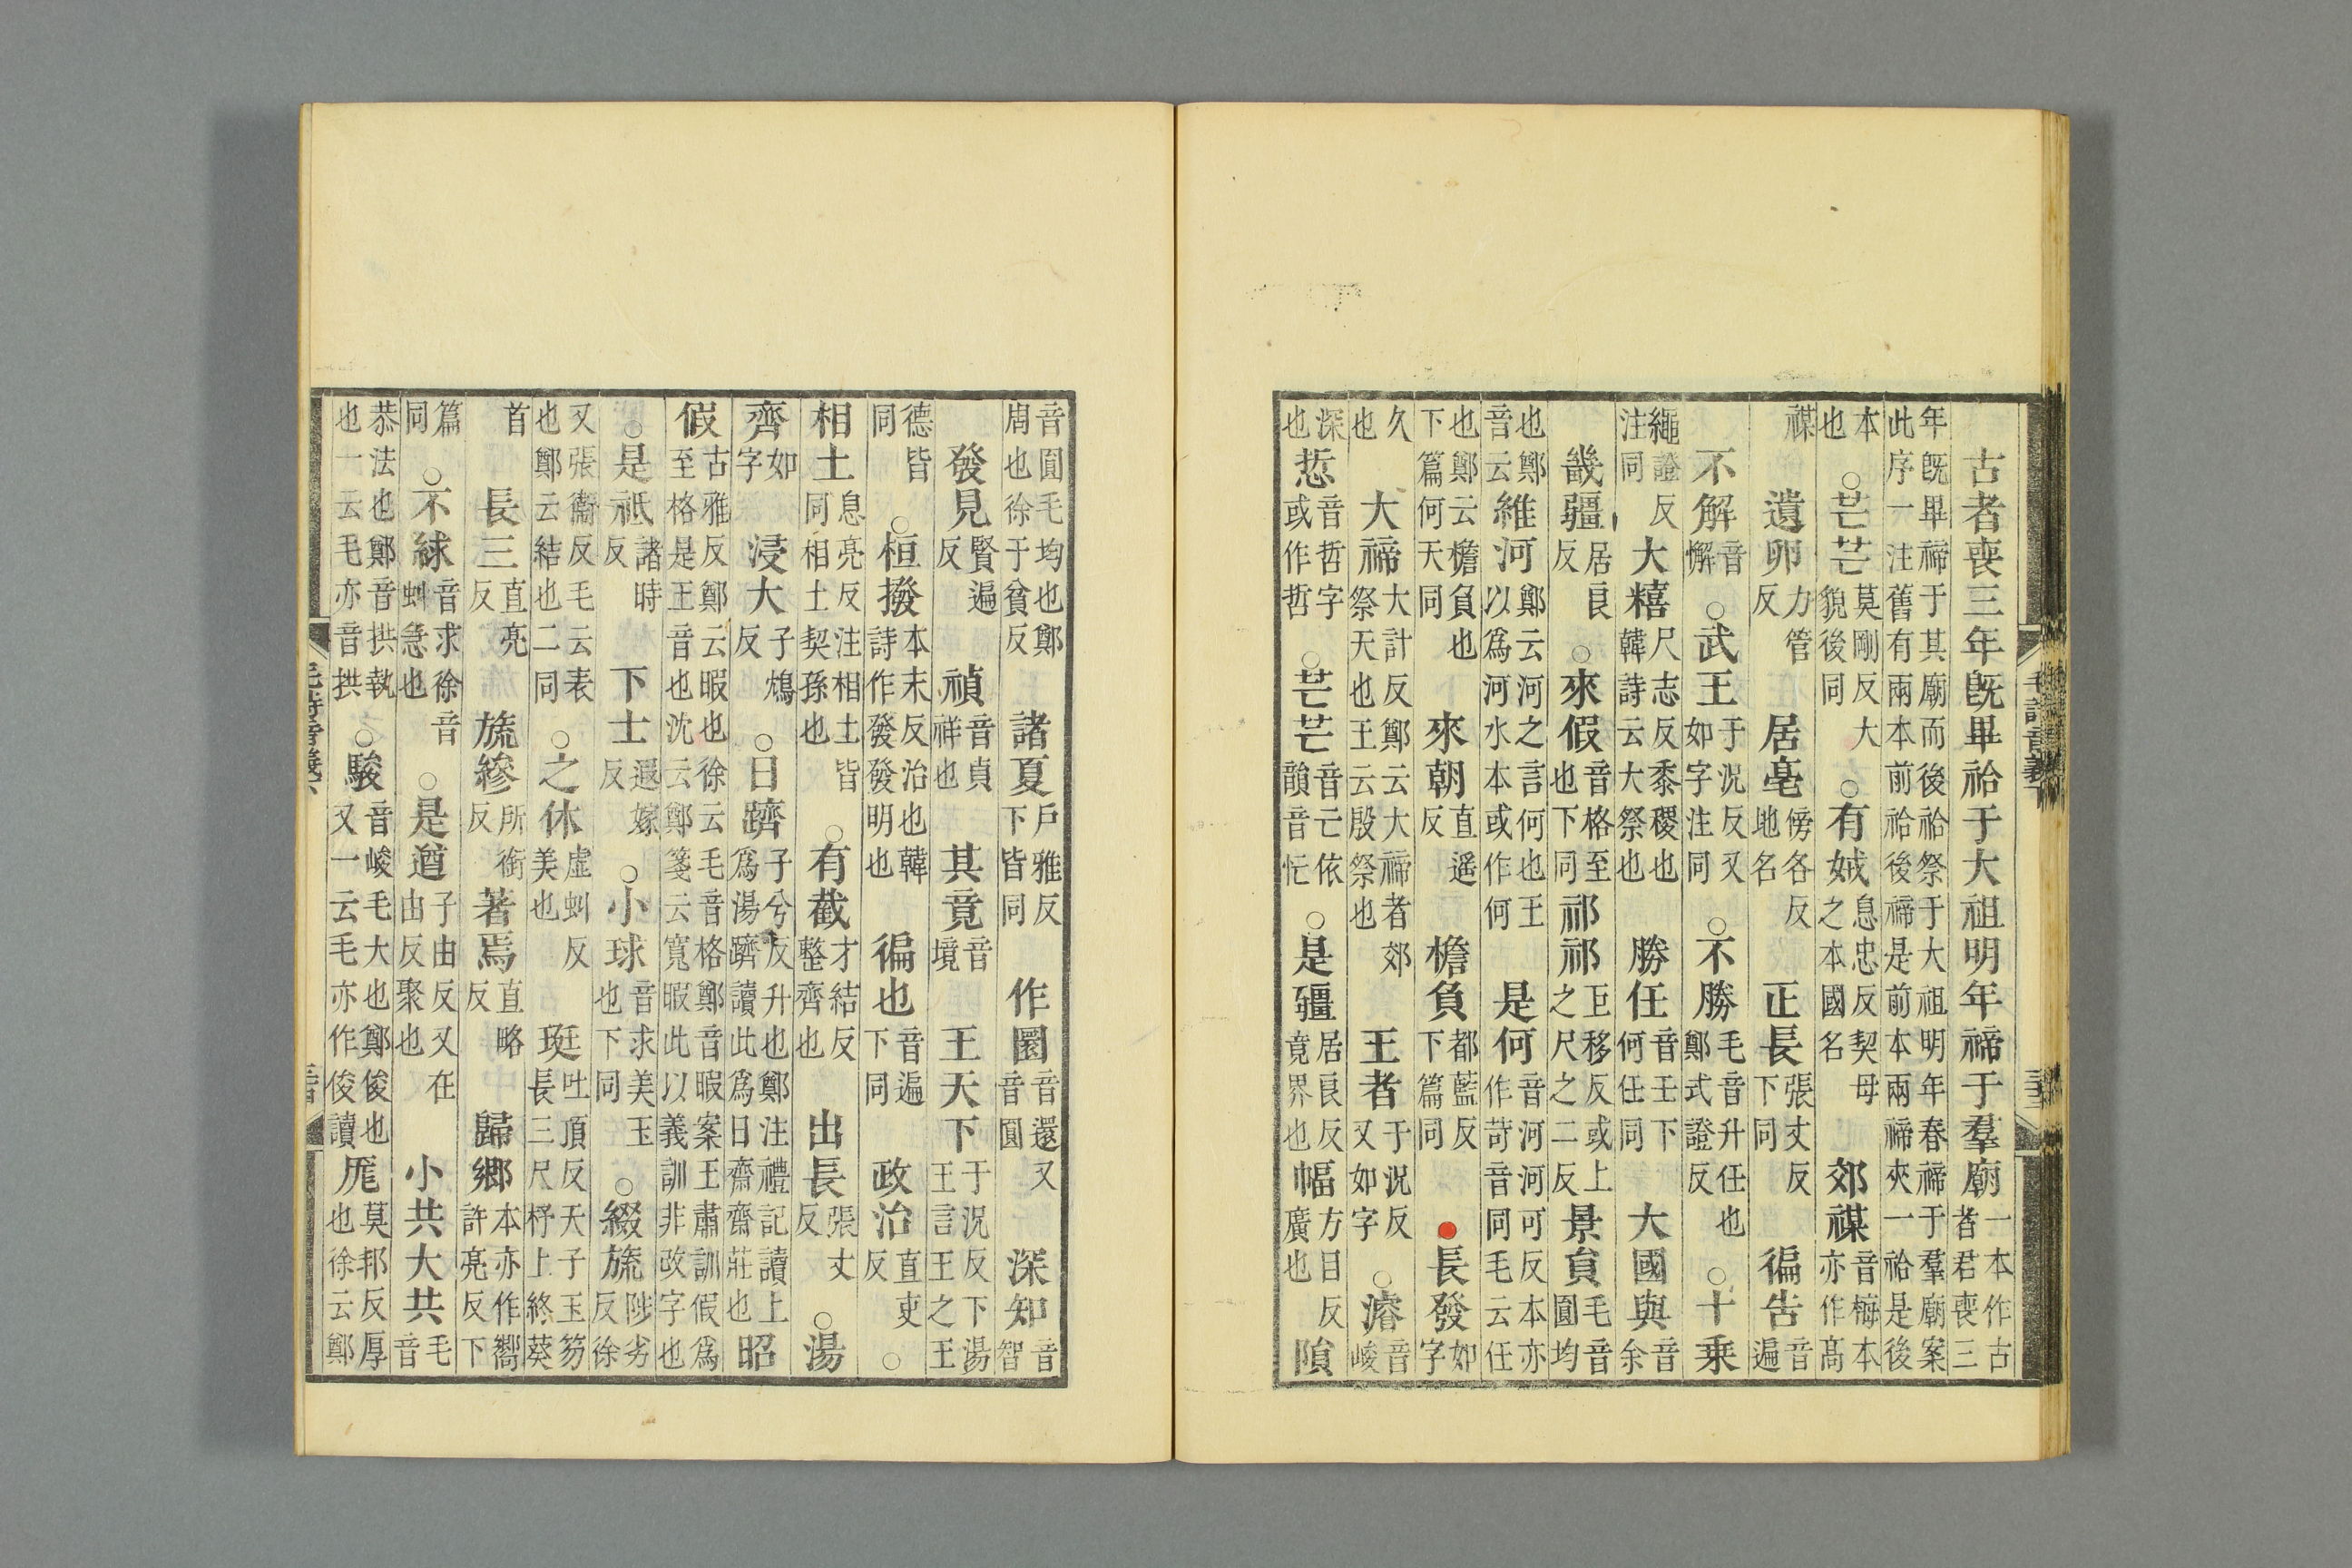 古者喪三年既畢祫于大祖明年禘于羣廟一本作古者君喪三
年既畢禘于其廟而後祫祭于大祖明年春禘于羣廟案此序一注舊有兩本前祫後禘是前本兩禘夾一祫是後
本也○芒芒莫剛反大貌後同○有娀息忠反契母之本國名郊禖音梅本亦作髙
禖遺卵力管反居亳傍各反地名正長張丈反下同徧告音遍
不解音懈○武王于況反又如字注同○不勝毛音升任也鄭式證反○十乗
繩證反注同大糦尺志反黍稷也韓詩云大祭也勝任音壬下何任同大國與音余
畿疆居良反○來假音格至也下同祁祁巨移反或上之尺之二反景貟毛音圓均
也鄭音云維河鄭云河之言何也王以爲河水本或作何是何音河河可反本亦作苛音同毛云任
也鄭云檐負也下篇何天同來朝直遥反檐負都藍反下篇同●長發如字
久也大禘大計反鄭云大禘者郊祭天也王云殷祭也王者于況反又如字○濬音峻
深也悊音哲字或作哲○芒芒音亡依韻音忙○是疆居良反竟界也幅方目反廣也隕
音圓毛均也鄭周也徐于貧反諸夏戶雅反下皆同作圜音還又音圓深知音智
發見賢遍反禎音貞祥也其竟音境王天下于況反下湯王言王之王
德皆同○桓撥本末反治也韓詩作發發明也徧也音遍下同政治直吏反○
相土息亮反注相土皆同相土契孫也○有截才結反整齊也出長張丈反○湯
齊如字浸大子鴆反○日躋子兮反升也鄭注禮記讀上爲湯躋讀此爲日齋齋莊也昭
假古雅反鄭云暇也徐云毛音格鄭音暇案王肅訓假爲至格是王音也沈云鄭箋云寬暇此以義訓非改字也
○是祇諸時反下士遐嫁反○小球音求美玉也下同○綴旒陟劣反徐
又張衞反毛云表也鄭云結也二同○之休虛虯反美也珽吐頂反天子玉笏長三尺杼上終葵
首長三直亮反旒縿所銜反著焉直略反歸鄉本亦作嚮許亮反下
篇同○不絿音求徐音虯急也○是遒子由反又在由反聚也小共大共毛音
恭法也鄭音拱執也一云毛亦音拱○駿音峻毛大也鄭俊也又一云毛亦作俊讀厖莫邦反厚也徐云鄭